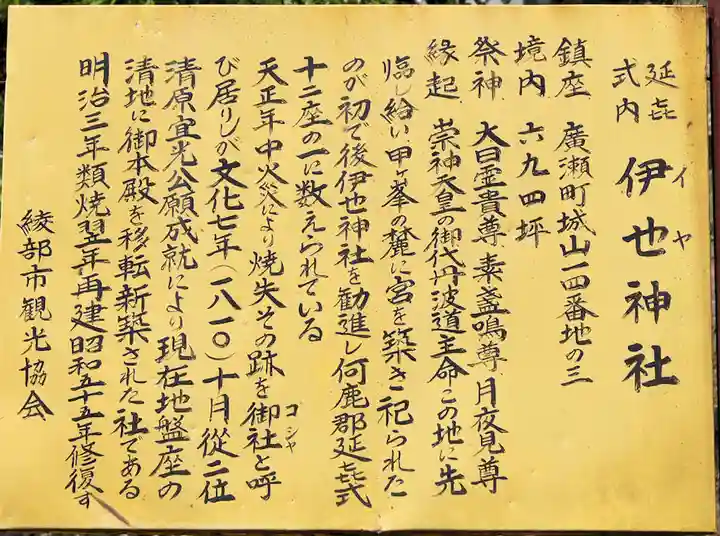 延㐂式内 伊也神社
イヤ
鎮座 廣瀬町城山一四番地の三
境内 六九四坪
祭神 大日霊貴尊 素盞鳴尊 月夜見尊
縁起 崇神天皇の御代丹波道主命この地に先
臨し給い甲ヶ峯の麓に宮を築き祀られた
のが初で後伊也神社を勧進し何鹿郡延㐂式
十二座の一に数えられている
天正年中火災により焼失その跡を御社と呼
コシャ
び居りしが文化七年(一八一〇)十月從二位
清原宜光公願成就により現在地盤座の
清地に御本殿を移転新築された社である
明治三年類焼翌年再建昭和五十五年修復す
綾部市観光協会